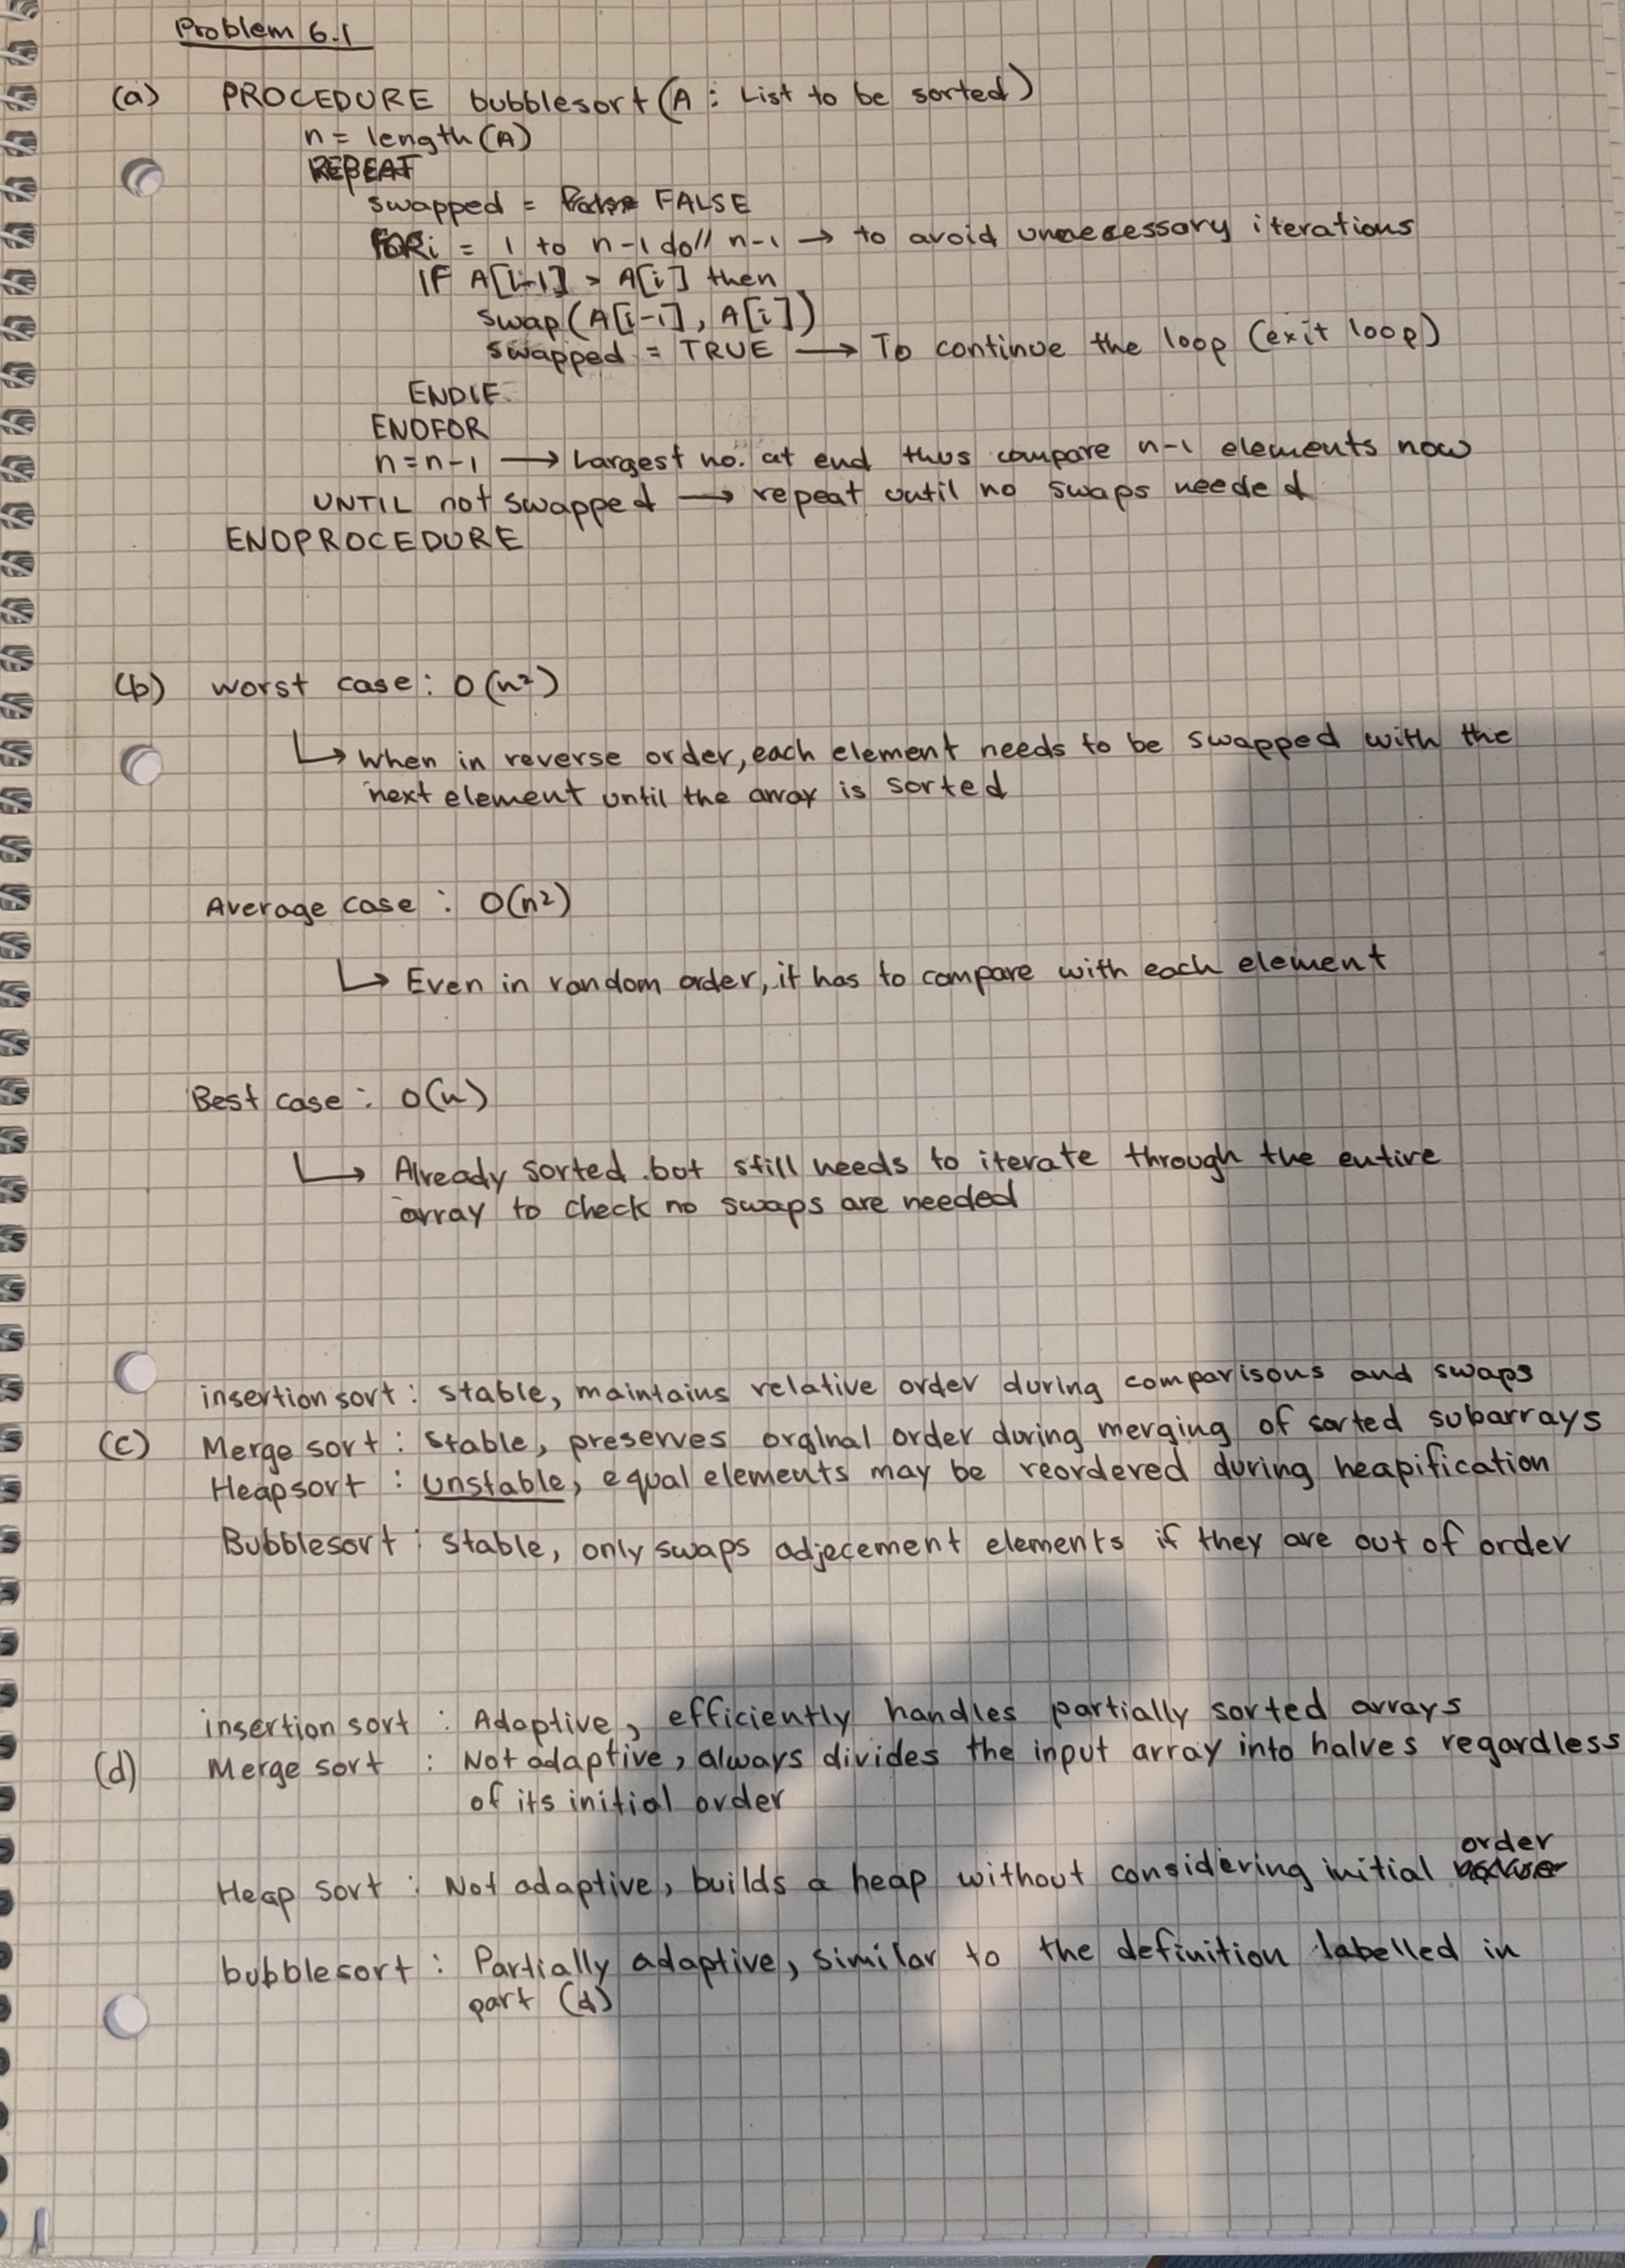 Problem 6.1
(a) PROCEDURE bubblesort (A : List to be sorted)
n = length (A)
REPEAT
swapped = FALSE
FOR i = 1 to n-1 do // n-1 → to avoid unnecessary iterations
IF A[i-1] > A[i] then
swap (A[i-1], A[i])
swapped = TRUE → To continue the loop (exit loop)
ENDIF
ENDFOR
n = n-1 → Largest no. at end thus compare n-1 elements now
UNTIL not swapped → repeat until no swaps needed
ENDPROCEDURE
(b) worst case : O(n²)
↳ when in reverse order, each element needs to be swapped with the
next element until the array is sorted
Average case : O(n²)
↳ Even in random order, it has to compare with each element
Best case : O(n)
↳ Already sorted but still needs to iterate through the entire
array to check no swaps are needed
insertion sort : stable, maintains relative order during comparisons and swaps
(c) Merge sort : Stable, preserves orginal order during merging of sorted subarrays
Heapsort : unstable, equal elements may be reordered during heapification
Bubblesort : stable, only swaps adjecement elements if they are out of order
insertion sort : Adaptive, efficiently handles partially sorted arrays
(d) Merge sort : Not adaptive, always divides the input array into halves regardless
of its initial order
Heap sort : Not adaptive, builds a heap without considering initial order
bubblesort : Partially adaptive, similar to the definition labelled in
part (d)